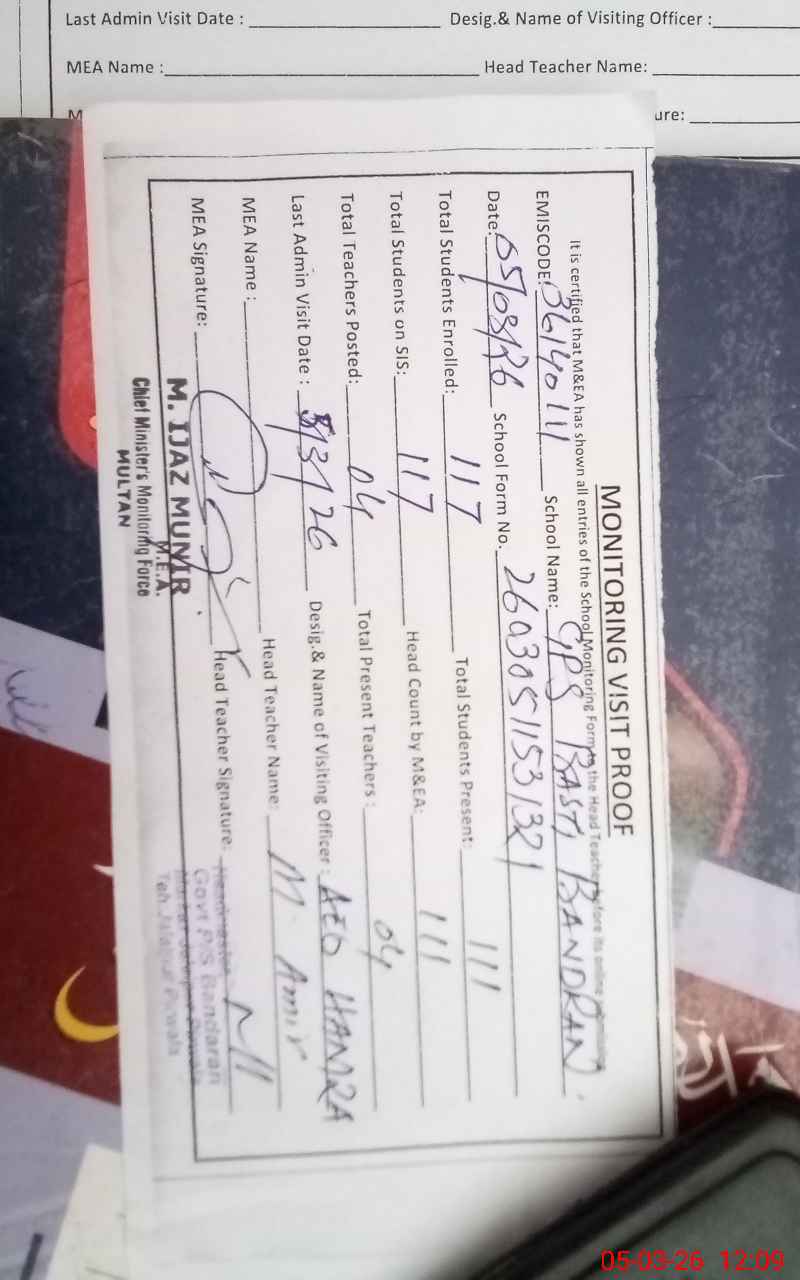 Last Admin Visit Date : Desig.& Name of Visiting Officer :
MEA Name : Head Teacher Name:
M ure:
MONITORING VISIT PROOF
It is certified that M&EA has shown all entries of the School Monitoring Form to the Head Teacher before its online
EMISCODE: 36140111 School Name: GPS BASTI BANDRAN.
Date: 05/03/26 School Form No. 26030511531321
Total Students Enrolled: 117 Total Students Present: 111
Total Students on SIS: 117 Head Count by M&EA: 111
Total Teachers Posted: 04 Total Present Teachers : 04
Last Admin Visit Date : 5/3/26 Desig.& Name of Visiting Officer : AEO HAMZA
MEA Name : Head Teacher Name: M. Amir
MEA Signature: Head Teacher Signature:
M. IJAZ MUNIR
M.E.A.
Chief Minister's Monitoring Force
MULTAN
Headmaster
Govt P/S Bandaran
Teh Jalalpur Pirwala
05-03-26 12:09